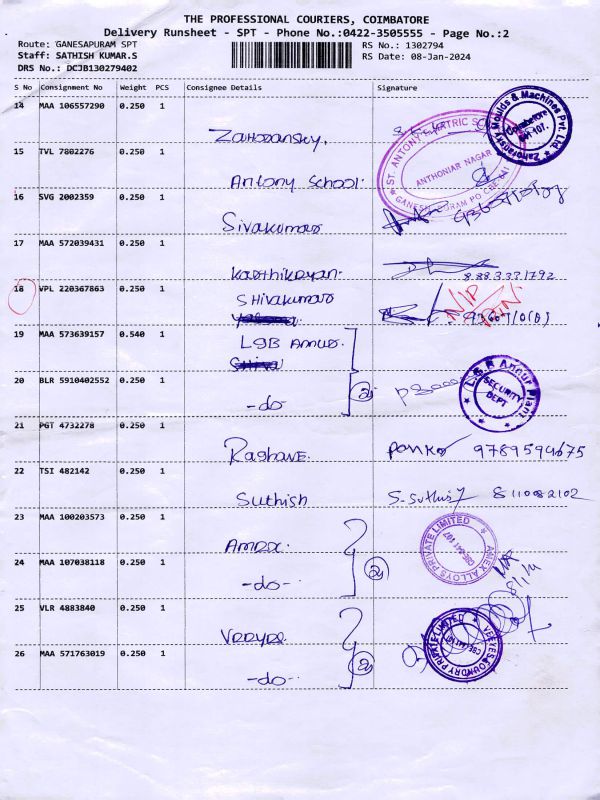 THE PROFESSIONAL COURIERS, COIMBATORE
Delivery Runsheet - SPT - Phone No.:0422-3505555 - Page No.:2
Route: GANESAPURAM SPT
RS No.: 1302794
Staff: SATHISH KUMAR.S
RS Date: 08-Jan-2024
DRS No.: DCJB130279402
S No Consignment No Weight PCS Consignee Details Signature
14 MAA 106557290 0.250 1
Zahoransky.
Zahoransky Moulds & Machines Pvt. Ltd.
Coimbatore
641 107.
15 TVL 7802276 0.250 1
Antony School.
ANTHONIAR NAGAR
16 SVG 2002359 0.250 1
Sivakumar
17 MAA 572039431 0.250 1
Karthikeyan.
8883331792
18 VPL 220367863 0.250 1
Shivakumar
19 MAA 573639157 0.540 1
LGB Annur.
20 BLR 5910402552 0.250 1
-do-
(2)
L.G.B Annur Plant
SECURITY
DEPT
21 PGT 4732278 0.250 1
Raghave.
9789594675
22 TSI 482142 0.250 1
Suthish
S-Suthis
811082102
23 MAA 100203573 0.250 1
Amex.
AMEX ALLOYS PRIVATE LIMITED
CBE-641 107
24 MAA 107038118 0.250 1
-do-
(2)
25 VLR 4883840 0.250 1
Veeyes
26 MAA 571763019 0.250 1
-do-
(2)